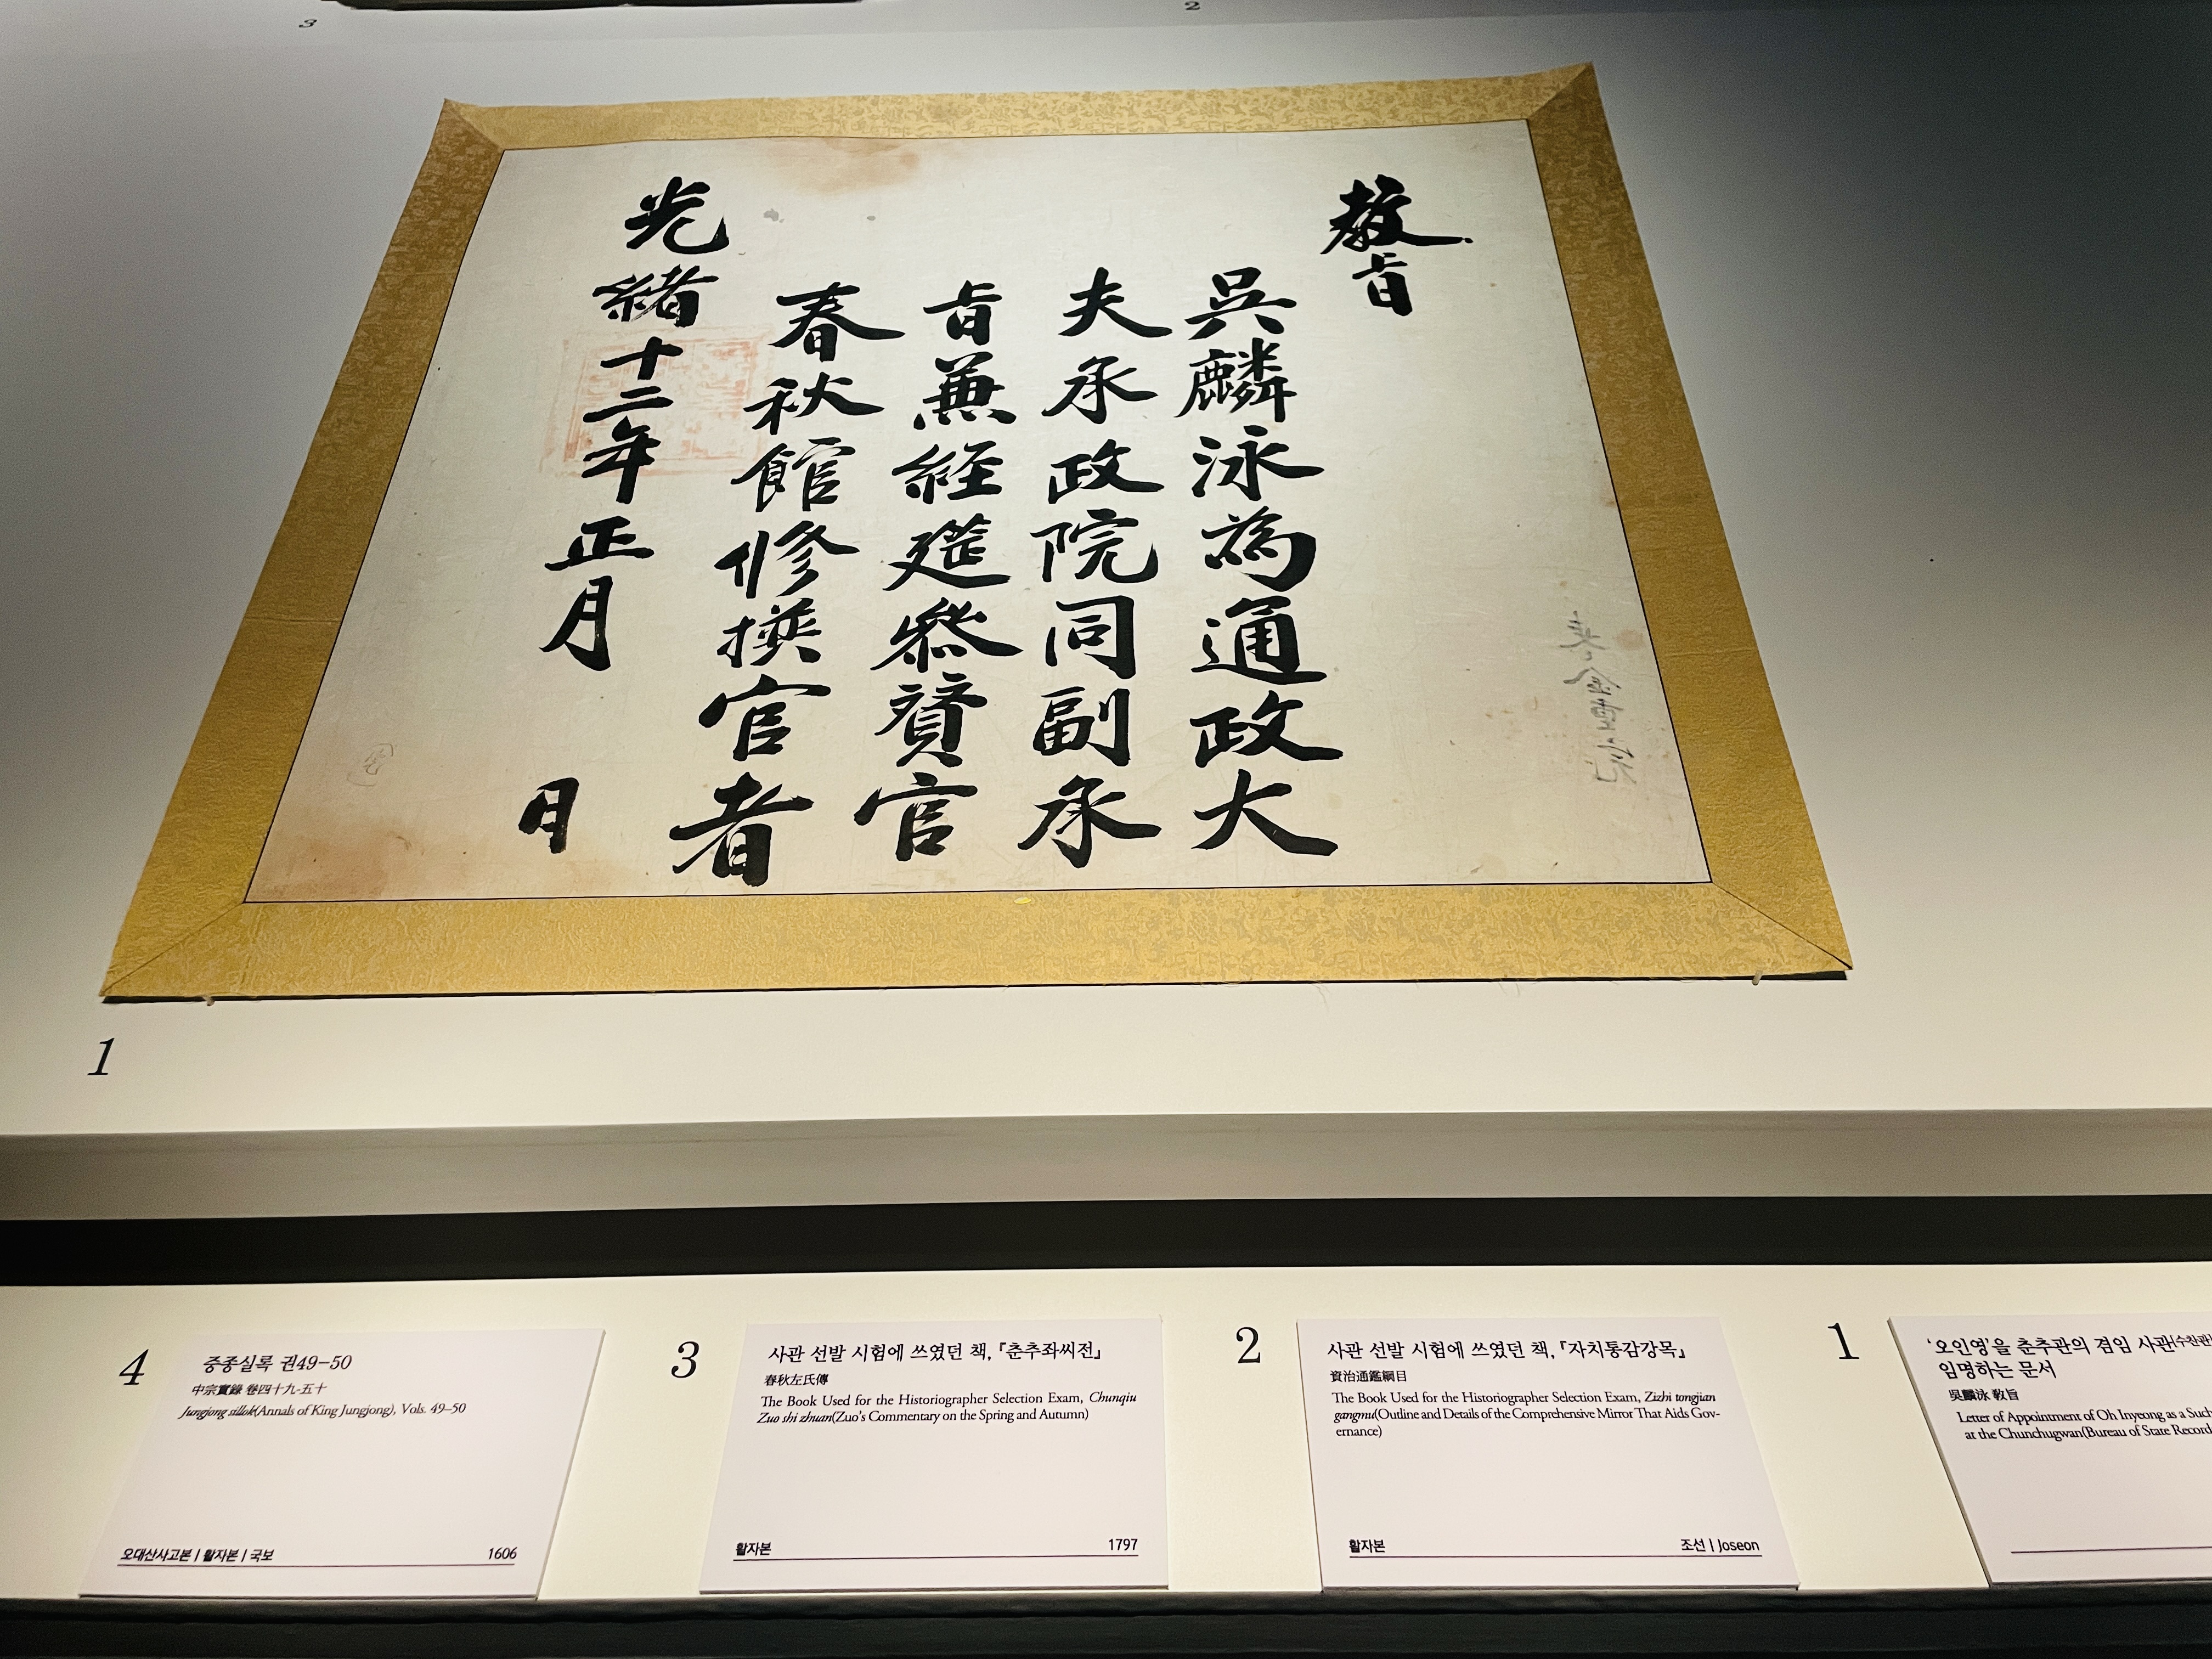 3
2
教旨
吳麟泳為通政大
夫承政院同副承
旨兼経筵叅賛官
春秋館修撰官者
光緒十二年正月 日
1
4
중종실록 권49-50
中宗實錄 卷四十九-五十
Jungjong sillok(Annals of King Jungjong), Vols. 49–50
오대산사고본 | 활자본 | 국보 1606
3
사관 선발 시험에 쓰였던 책, 『춘추좌씨전』
春秋左氏傳
The Book Used for the Historiographer Selection Exam, Chunqiu
Zuo shi zhuan(Zuo's Commentary on the Spring and Autumn)
활자본 1797
2
사관 선발 시험에 쓰였던 책, 『자치통감강목』
資治通鑑綱目
The Book Used for the Historiographer Selection Exam, Zizhi tongjian
gangmu(Outline and Details of the Comprehensive Mirror That Aids Gov-
ernance)
활자본 조선 | Joseon
1
'오인영'을 춘추관의 겸임 사관(수찬관
임명하는 문서
吳麟泳 敎旨
Letter of Appointment of Oh Inyeong as a Such
at the Chunchugwan(Bureau of State Record